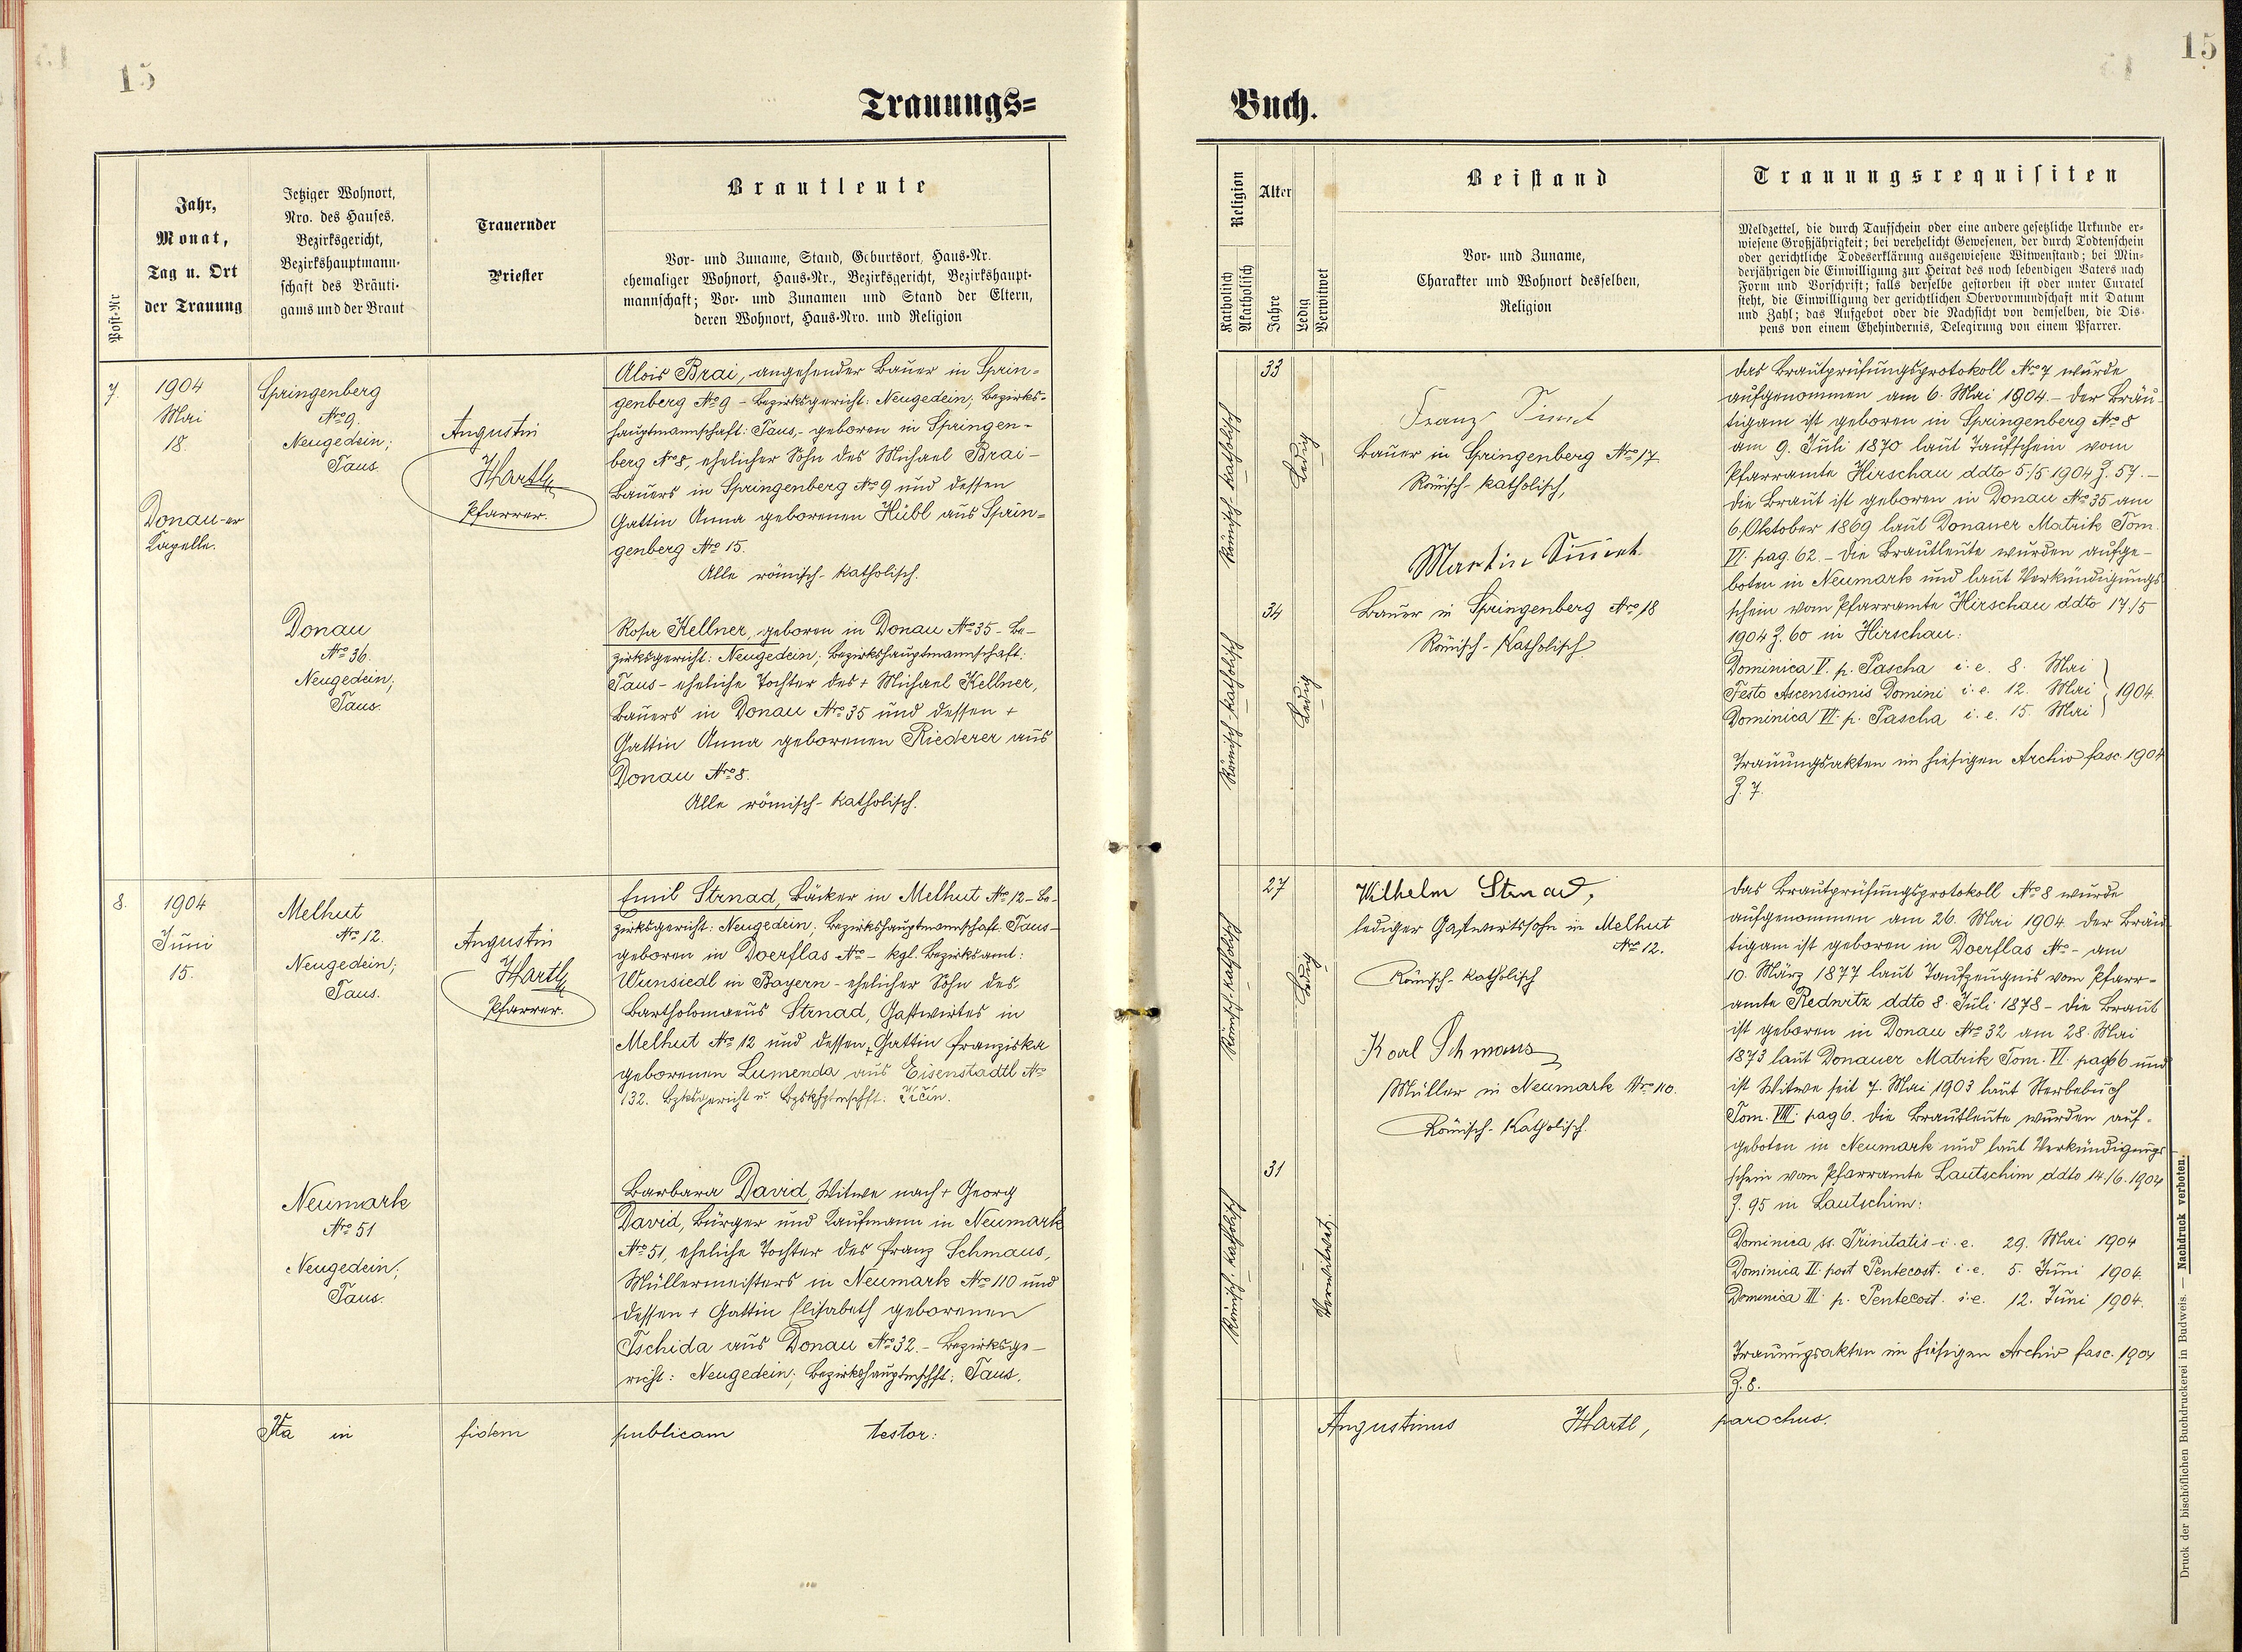 15
15
Trauungs=
Buch.
Post-Nr
Jahr,
Monat,
Tag u. Ort
der Trauung
Jetziger Wohnort,
Nro. des Hauses,
Bezirksgericht,
Bezirkshauptmann-
schaft des Bräuti-
gams und der Braut
Trauernder
Priester
Brautleute
Vor- und Zuname, Stand, Geburtsort, Haus-Nr.
ehemaliger Wohnort, Haus-Nr., Bezirksgericht, Bezirkshaupt-
mannschaft; Vor- und Zunamen und Stand der Eltern,
deren Wohnort, Haus-Nro. und Religion
Religion
Katholisch
Akatholisch
Alter
Jahre
Ledig
Verwitwet
Beistand
Vor- und Zuname,
Charakter und Wohnort desselben,
Religion
Trauungsrequisiten
Meldzettel, die durch Taufschein oder eine andere gesetzliche Urkunde er-
wiesene Großjährigkeit; bei verehelicht Gewesenen, der durch Todtenschein
oder gerichtliche Todeserklärung ausgewiesene Witwenstand; bei Min-
derjährigen die Einwilligung zur Heirat des noch lebendigen Vaters nach
Form und Vorschrift; falls derselbe gestorben ist oder unter Curatel
steht, die Einwilligung der gerichtlichen Obervormundschaft mit Datum
und Zahl; das Aufgebot oder die Nachsicht von demselben, die Dis-
pens von einem Ehehindernis, Delegirung von einem Pfarrer.
7.
1904
Mai
18.
Donau-er
Kapelle.
Springenberg
Nro 9.
Neugedein;
Taus.
Augustin
Hartl
Pfarrer.
Alois Brai, angehender Bauer in Sprin=
genberg Nro 9 - Bezirksgericht: Neugedein; Bezirks-
hauptmannschaft: Taus,- geboren in Springen-
berg Nro 8, ehelicher Sohn des Michael Brai-
Bauers in Springenberg Nro 9 und dessen
Gattin Anna geborenen Hübl aus Sprin=
genberg Nro 15.
Alle römisch-katholisch.
Donau
Nro 36.
Neugedein;
Taus.
Rosa Kellner, geboren in Donau Nro 35 - Be-
zirksgericht: Neugedein; Bezirkshauptmannschaft:
Taus - eheliche Tochter des + Michael Kellner,
Bauers in Donau Nro 35 und dessen +
Gattin Anna geborenen Riederer aus
Donau Nro 8.
Alle römisch-katholisch.
33
Römisch-katholisch
Ledig
Franz
Bauer in Springenberg Nro 17
Römisch-katholisch,
Martin
34
Römisch-katholisch
Ledig
Bauer in Springenberg Nro 18
Römisch-Katholisch
Das Brautprüfungsprotokoll Nro 7 wurde
aufgenommen am 6. Mai 1904.- Der Bräu-
tigam ist geboren in Springenberg Nro 8
am 9. Juli 1870 laut Taufschein vom
Pfarramte Hirschau ddto 5/5 1904 Z. 57.-
Die Braut ist geboren in Donau Nro 35 am
6. Oktober 1869 laut Donauer Matrik Tom.
VI. pag. 62.- Die Brautleute wurden aufge-
boten in Neumark und laut Verkündigungs
schein vom Pfarramte Hirschau ddto 17/5
1904 Z. 60 in Hirschau:
Dominica V. p. Pascha i. e. 8. Mai
Festo Ascensionis Domini i. e. 12. Mai } 1904.
Dominica VI. p. Pascha i. e. 15. Mai
Trauungsakten im hiesigen Archiv fasc. 1904
Z. 7.
8.
1904
Juni
15.
Melhut
Nro 12.
Neugedein;
Taus.
Augustin
Hartl
Pfarrer.
Emil Strnad, Bäcker in Melhut Nro 12 - Be-
zirksgericht: Neugedein; Bezirkshauptmannschaft: Taus-
geboren in Doerflas Nro - kgl. Bezirksamt:
Wunsiedl in Bayern - ehelicher Sohn des
Bartholomaeus Strnad, Gastwirtes in
Melhut Nro 12 und dessen + Gattin Franziska
geborenen Lumenda aus Eisenstadtl Nro
132. Bzksgericht u. Bzkshptmschft. Jičin.
Neumark
Nro 51
Neugedein;
Taus.
Barbara David, Witwe nach + Georg
David, Bürger und Kaufmann in Neumark
Nro 51, eheliche Tochter des Franz Schmaus,
Müllermeisters in Neumark Nro 110 und
dessen + Gattin Elisabeth geborenen
Tschida aus Donau Nro 32.- Bezirksge-
richt: Neugedein; Bezirkshauptmschft: Taus.
27
Römisch-katholisch
Ledig
Wilhelm Strnad,
lediger Gastwirtssohn in Melhut
Nro 12.
Römisch-katholisch
Karl Schmaus
Müller in Neumark Nro 110.
Römisch-Katholisch.
31
Römisch-katholisch
Verwitwet.
Das Brautprüfungsprotokoll Nro 8 wurde
aufgenommen am 26. Mai 1904. Der Bräu
tigam ist geboren in Doerflas Nro - am
10. März 1877 laut Taufzeugnis vom Pfarr-
amte Redwitz ddto 8. Juli 1878 - Die Braut
ist geboren in Donau Nro 32 am 28. Mai
1873 laut Donauer Matrik Tom. VI. pag 66 und
ist Witwe seit 7. Mai 1903 laut Sterbebuch
Tom. VIII. pag 6. Die Brautleute wurden auf-
geboten in Neumark und laut Verkündigungs
schein vom Pfarramte Lautschim ddto 14/6. 1904
Z. 95 in Lautschim:
Dominica ss. Trinitatis i. e. 29. Mai 1904
Dominica II. post Pentecost. i. e. 5. Juni 1904.
Dominica III. p. Pentecost. i. e. 12. Juni 1904.
Trauungsakten im hiesigen Archiv fasc. 1904
Z. 8.
Ita in fidem publicam testor: Augustinus Hartl, parochus.
Druck der bischöflichen Buchdruckerei in Budweis. — Nachdruck verboten.